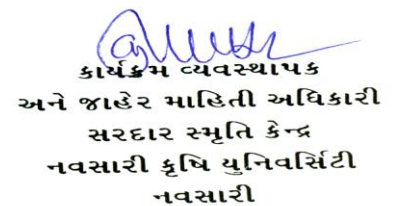 કાર્યક્રમ વ્યવસ્થાપક
અને જાહેર માહિતી અધિકારી
સરદાર સ્મૃતિ કેન્દ્ર
નવસારી કૃષિ યુનિવર્સિટી
નવસારી